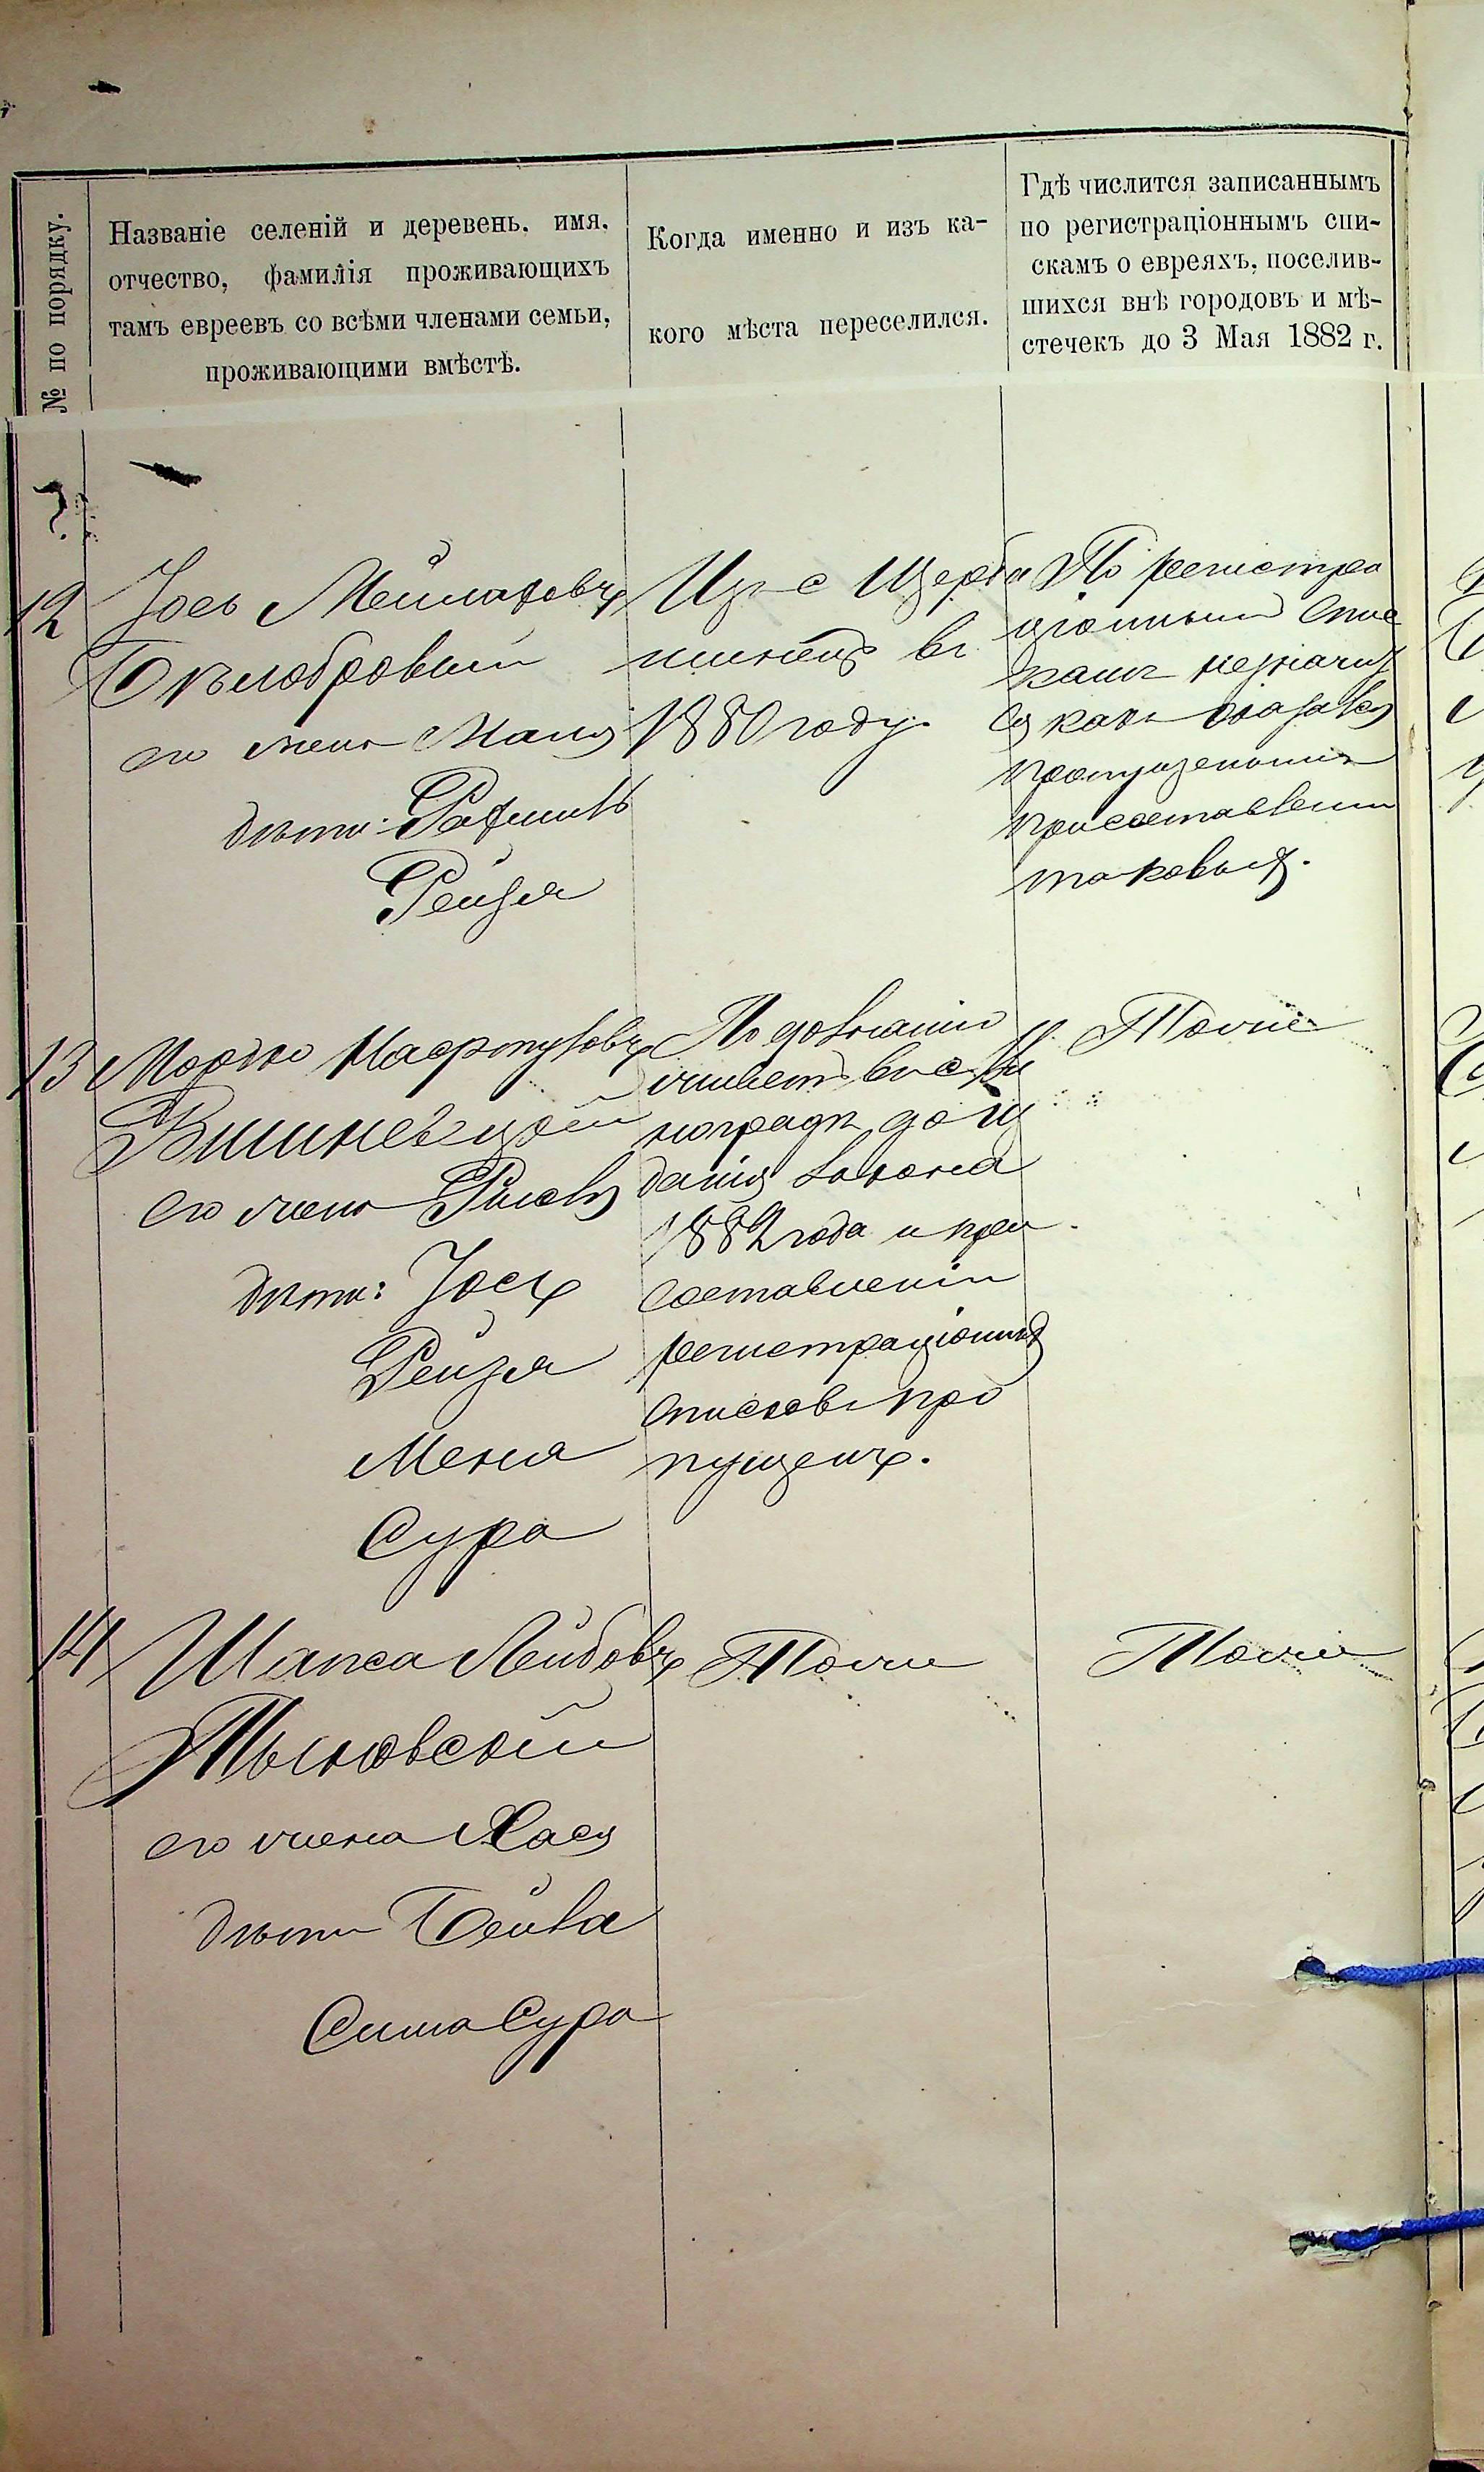 № по порядку.
Названіе селеній и деревень, имя,
отчество, фамилія проживающихъ
тамъ евреевъ со всѣми членами семьи,
проживающими вмѣстѣ.
Когда именно и изъ ка-
кого мѣста переселился.
Гдѣ числится записаннымъ
по регистраціоннымъ спи-
скамъ о евреяхъ, поселив-
шихся внѣ городовъ и мѣ-
стечекъ до 3 Мая 1882 г.
12
Іось
Бѣлобровый
его жена Маня
дѣти:
Рейзя
Изъ с Щерба
въ
1880 году.
По регистра
ціоннымъ спис
камъ незначит
ся какъ оказався
пропущеннымъ
при составленіи
таковыхъ.
13
Мордко
Вишневецкій
его жена Рися
дѣти: Іось
Рейзя
Меня
Сура
По дознанію
живетъ въ с. Ви
ноградѣ до из
данія закона
1882 года и при
составленіи
регистраціонныхъ
списковъ про
пущенъ.
Тоже
14
Шапса Лейбовъ
Тыновскій
его жена Хася
дѣти Бейла
Сима Сура
Тоже
Тоже